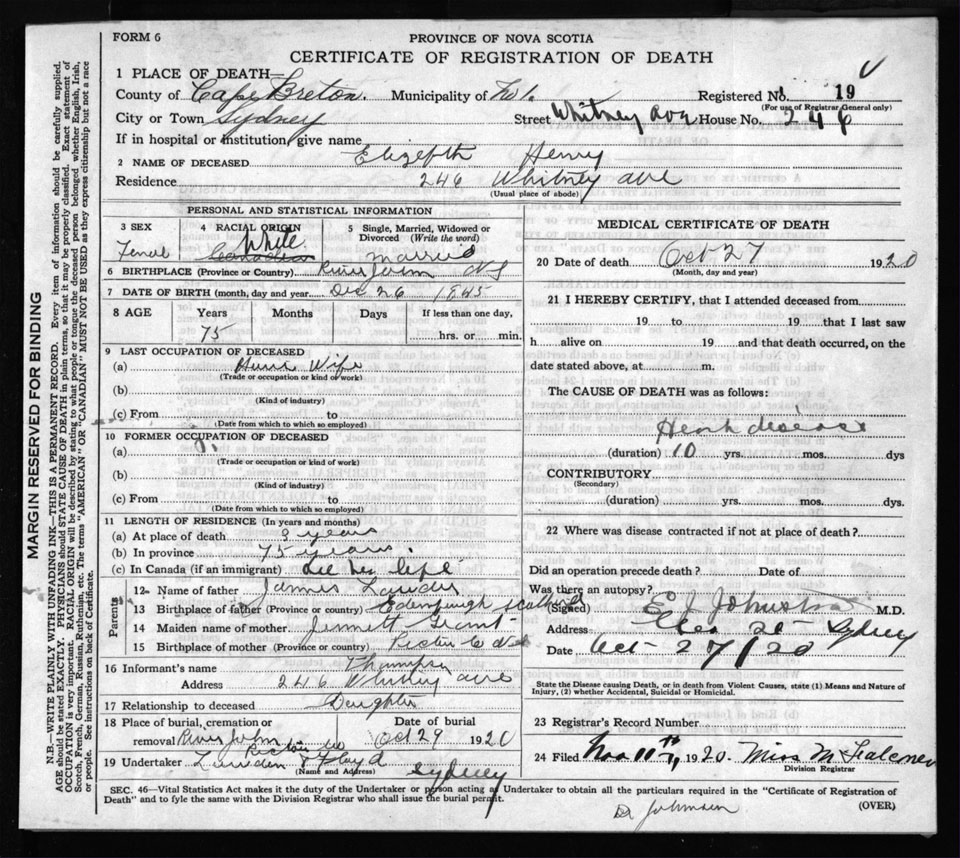 FORM 6
PROVINCE OF NOVA SCOTIA
CERTIFICATE OF REGISTRATION OF DEATH
1 PLACE OF DEATH—
County of Cape Breton. Municipality of Registered No. 19
(For use of Registrar General only)
City or Town Sydney Street Whitney Ave House No. 246
If in hospital or institution, give name
2 NAME OF DECEASED Elizebth Henry
Residence 246 Whitney ave
(Usual place of abode)
PERSONAL AND STATISTICAL INFORMATION
3 SEX 4 RACIAL ORIGIN 5 Single, Married, Widowed or Divorced (Write the word)
Female White Canadian married
6 BIRTHPLACE (Province or Country) River John N S
7 DATE OF BIRTH (month, day and year) Dec 26 1845
8 AGE Years Months Days If less than one day,
75 hrs. or min.
9 LAST OCCUPATION OF DECEASED
(a) House Wife
(Trade or occupation or kind of work)
(b)
(Kind of industry)
(c) From to
(Date from which to which so employed)
10 FORMER OCCUPATION OF DECEASED
(a)
(Trade or occupation or kind of work)
(b)
(Kind of industry)
(c) From to
(Date from which to which so employed)
11 LENGTH OF RESIDENCE (In years and months)
(a) At place of death years
(b) In province 75 years.
(c) In Canada (if an immigrant) her life
Parents
12 Name of father James
13 Birthplace of father (Province or country) Edinburgh Scotland
14 Maiden name of mother Jennett Grant
15 Birthplace of mother (Province or country) Pictou Co N S
16 Informant's name Thompson
Address 246 Whitney ave
17 Relationship to deceased Daughter
18 Place of burial, cremation or removal River John Pictou Co Date of burial Oct 29 1920
19 Undertaker Sydney
(Name and Address)
MEDICAL CERTIFICATE OF DEATH
20 DATE OF DEATH Oct 27 1920
(Month, day and year)
21 I HEREBY CERTIFY, that I attended deceased from
19 to 19 that I last saw
h alive on 19 and that death occurred, on the
date stated above, at m.
The CAUSE OF DEATH was as follows:
Heart disease
(duration) 10 yrs. mos. dys
CONTRIBUTORY
(Secondary)
(duration) yrs. mos. dys.
22 Where was disease contracted if not at place of death?
Did an operation precede death? Date of
Was there an autopsy?
(Signed) E J Johnston M.D.
Address Geo St Sydney
Date Oct 27/20
State the Disease causing Death, or in death from Violent Causes, state (1) Means and Nature of
Injury, (2) whether Accidental, Suicidal or Homicidal.
23 Registrar's Record Number
24 Filed Nov 11th, 1920. Miss M Falconer
Division Registrar
SEC. 46—Vital Statistics Act makes it the duty of the Undertaker or person acting as Undertaker to obtain all the particulars required in the "Certificate of Registration of
Death" and to fyle the same with the Division Registrar who shall issue the burial permit.
(OVER)
Dr Johnson
MARGIN RESERVED FOR BINDING
N.B.—WRITE PLAINLY WITH UNFADING INK—THIS IS A PERMANENT RECORD. Every item of information should be carefully supplied.
AGE should be stated EXACTLY. PHYSICIANS should STATE CAUSE OF DEATH in plain terms, so that it may be properly classified. Exact statement of
OCCUPATION is very important. RACIAL ORIGIN will be described by stating to what people or tongue the deceased person belonged whether English, Irish,
Scotch, French, German, Russian, Ruthenian, etc. The terms "AMERICAN" or "CANADIAN" MUST NOT BE USED as they express citizenship but not a race
or people. See instructions on back of Certificate.